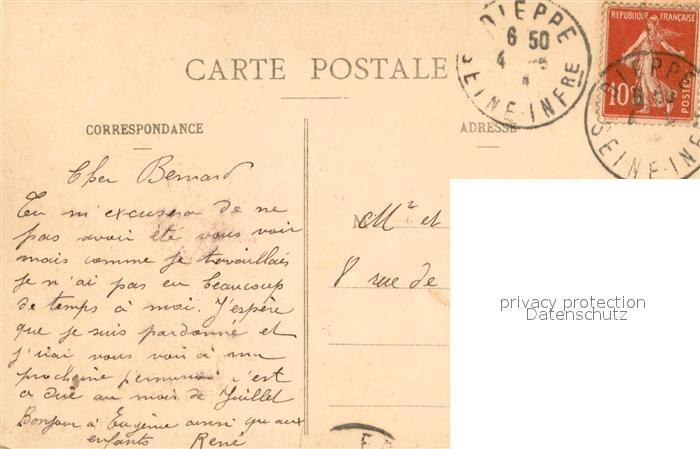 CARTE POSTALE
DIEPPE
6 50
4
SEINE-INFRE
REPUBLIQUE FRANÇAISE
10
POSTES
DIEPPE
SEINE-INF
CORRESPONDANCE
ADRESSE
Cher Bernard
Tu m'excusera de ne
pas avoir été vous voir
mais comme je travaillais
je n'ai pas eu beaucoup
de temps à moi. J'espère
que je suis pardonné et
j'irai vous voir à ma
prochaine permission c'est
a dire au mois de Juillet
Bonjour à Eugénie ainsi que aux
enfants René
M
Mr et
8 rue de
privacy protection
Datenschutz